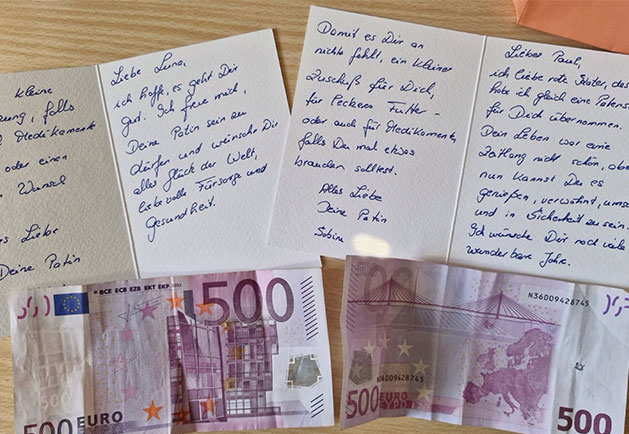 Kleine
falls
Medikamente
oder einen
Wunsch
Liebe
Deine Patin
Liebe Luna,
ich hoffe, es geht Dir
gut. Ich freue mich,
Deine Patin sein zu
dürfen und wünsche Dir
alles Glück der Welt,
liebevolle Fürsorge und
Gesundheit.
Damit es Dir an
nichts fehlt, ein kleiner
Zuschuß für Dich,
für leckeres Futter -
oder auch für Medikamente,
falls Du mal etwas
brauchen solltest.
Alles Liebe
Deine Patin
Sabine
Lieber Paul,
ich liebe rote Kater, des
habe ich gleich eine Patens
für Dich übernommen.
Dein Leben war eine
Zeitlang nicht schön, aber
nun kannst Du es
genießen, verwöhnt, ums
und in Sicherheit zu sein.
Ich wünsche Dir noch viele
wunderbare Jahre.
BCE ECB EZB EKT EKP 2002
500
500 EURO
ΕΥΡΩ
N36009428745
N36009428745
500 EURO
ΕΥΡΩ
500